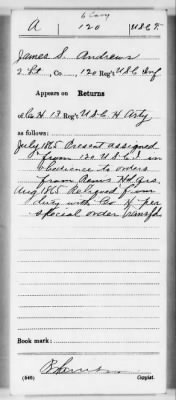 6 Cav
A 120 U.S.C.T.
James S. Andrews
2 Lt, Co , 120 Reg't U.S.C. Inf
Appears on
Returns
of Co. H 13 Reg't U.S.C. H. Arty
as follows:
July 1865 Present assigned
from 120 U.S.C.I. in
obedience to orders
from Hd. Qrs.
Aug 1865 Relieved from
duty with Co H per
special order transfd
Book mark:
(646) Copyist.